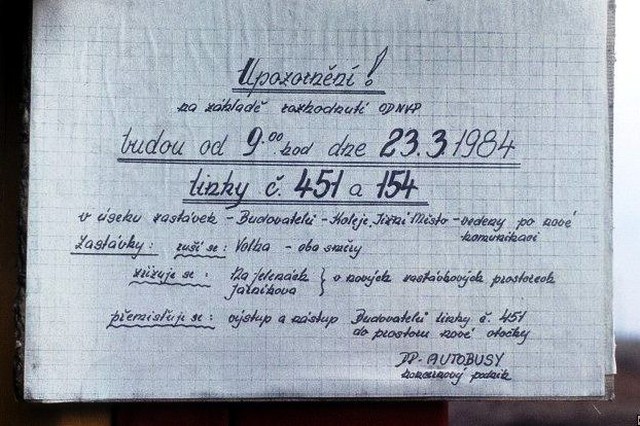 Upozornění!
na základě rozhodnutí ODNVP
budou od 9.00 hod dne 23.3.1984
linky č. 451 a 154
v úseku zastávek - Budovatelů - Koleje Jižní Město - vedeny po nové
komunikaci
Zastávky: ruší se: Volha - oba směry
zřizuje se: Na jelenách } v nových zastávkových prostorech
Jažníkova
přemisťuje se: výstup a nástup Budovatelů linky č. 451
do prostoru nové otočky
DP-AUTOBUSY
koncernový podnik